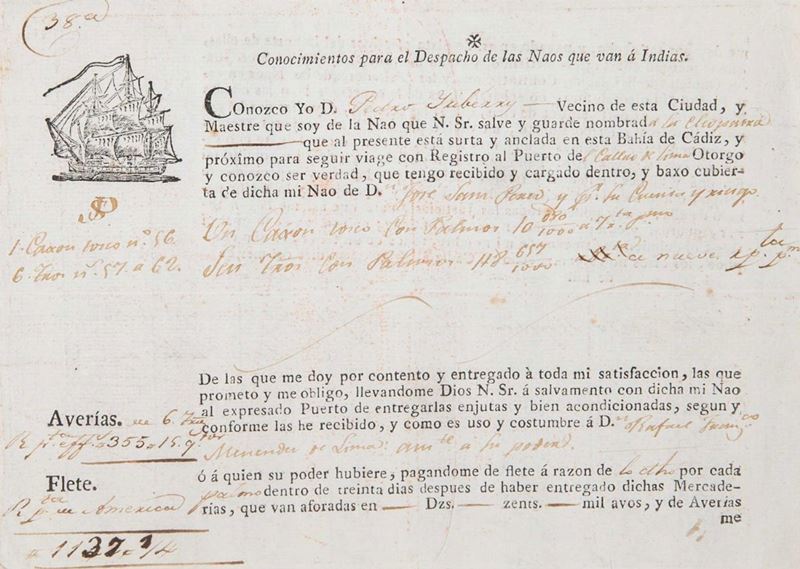 38.ª
Conocimientos para el Despacho de las Naos que van á Indias.
COnozco Yo D. Pedro Yuberry Vecino de esta Ciudad, y
Maestre que soy de la Nao que N. Sr. salve y guarde nombrada la
que al presente está surta y anclada en esta Bahía de Cádiz, y
próximo para seguir viage con Registro al Puerto del Callao de Lima Otorgo
y conozco ser verdad, que tengo recibido y cargado dentro, y baxo cubier-
ta de dicha mi Nao de D.n José y su Cuenta y riesgo
1. Caxon tosco n.º 56. Un Caxon tosco con Palmos 10
6. n.º 57 á 62. Seis con Palmos 118 657/1000 de nueve
De las que me doy por contento y entregado à toda mi satisfaccion, las que
prometo y me obligo, llevandome Dios N. Sr. á salvamento con dicha mi Nao
al expresado Puerto de entregarlas enjutas y bien acondicionadas, segun y
conforme las he recibido, y como es uso y costumbre á D.n Rafael
Menendez de Lima: á su poder.
Averías. de 6.
355 15
ó á quien su poder hubiere, pagandome de flete á razon de lo dho por cada
palmo dentro de treinta dias despues de haber entregado dichas Mercade-
rías, que van aforadas en Dzs. zents. mil avos, y de Averías
me
Flete.
de America
1137 1/4